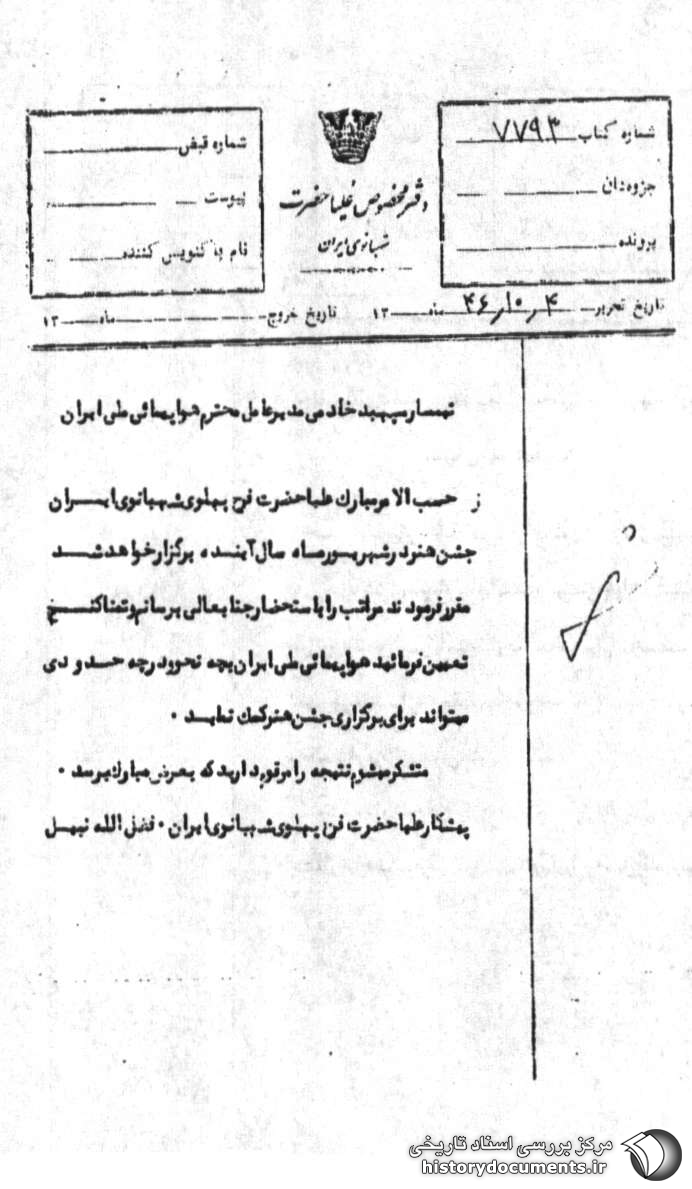 شماره کتاب ۷۷۹۳
جزوه‌دان
پرونده
دفتر مخصوص علیاحضرت
شهبانوی ایران
شماره قبض
پیوست
نام پاکنویس کننده
تاریخ تحریر ۴۶٫۱۰٫۴ ماه ۱۳
تاریخ خروج ماه ۱۳
تیمسار سپهبد خادمی مدیرعامل محترم هواپیمائی ملی ایران
حسب الامر مبارك علیاحضرت فرح پهلوی شهبانوی ایران
جشن هنر در شهریور ماه سال آینده برگزار خواهد شد
مقرر فرمودند مراتب را باستحضار جنابعالی برسانم و تمنا کنم
تعیین فرمائید هواپیمائی ملی ایران بچه نحو و در چه حدودی
میتواند برای برگزاری جشن هنر کمك نماید .
متشکر میشوم نتیجه را مرقوم دارید که بعرض مبارك برسد .
پیشکار علیاحضرت فرح پهلوی شهبانوی ایران . فضل الله نبیل
مرکز بررسی اسناد تاریخی
historydocuments.ir